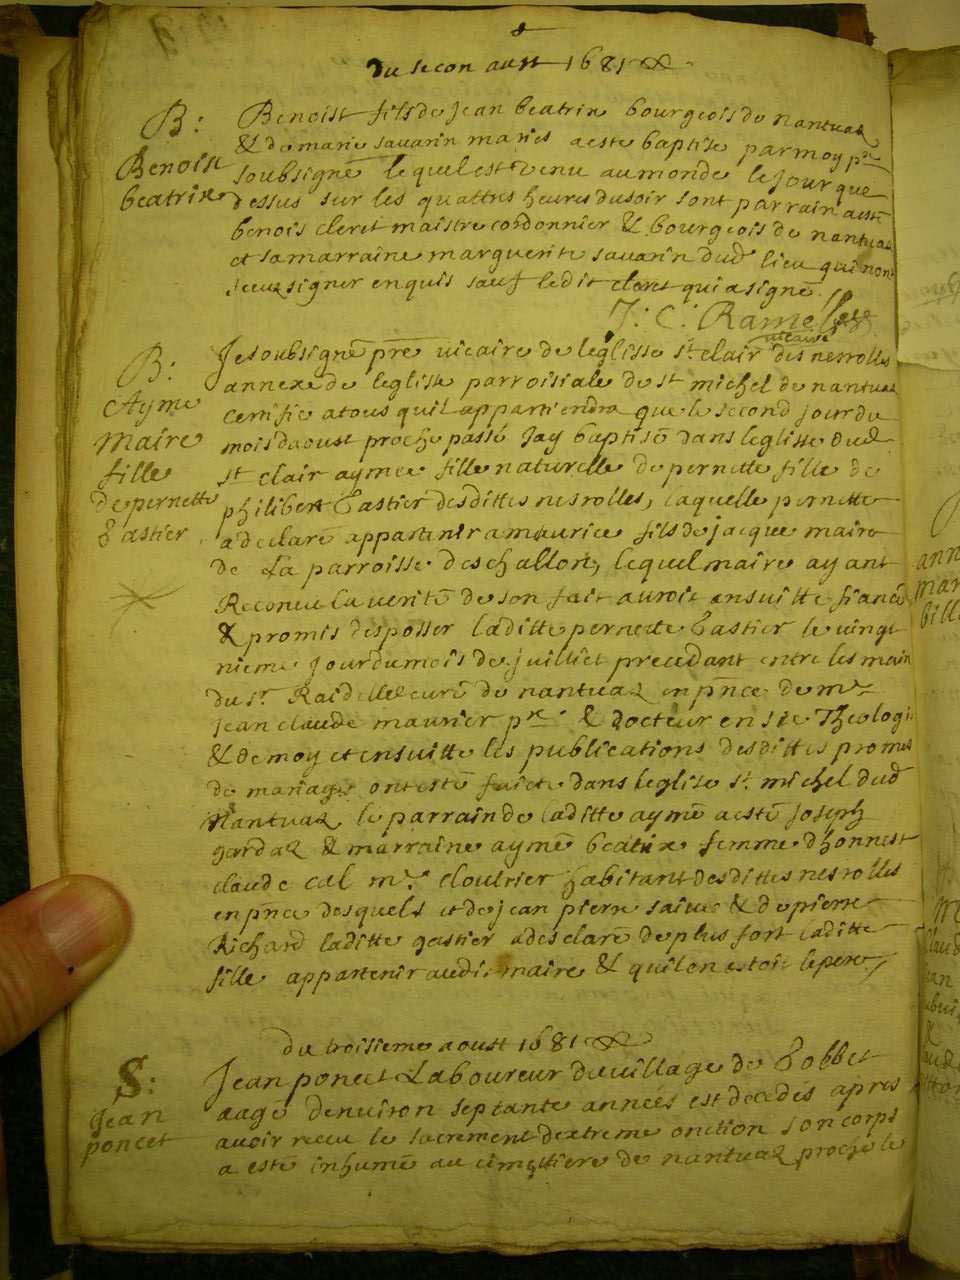 du secon aust 1681
B:
Benoist
beatrix
Benoist fils de Jean beatrix bourgeois de nantuaz
& de marie savarin maries a este baptise par moy pre
soubsigné lequel est venu au monde le jour que
dessus sur les quattres heures du soir sont parrain a esté
benois cleret maistre cordonnier & bourgeois de nantuaz
et sa marraine marguerite savarin dud lieu qui nont
sceuz signer enquis sauf ledit cleret qui a signé.
J: C: Ramel
vicaire
B:
Ayme
Maire
fille
de pernette
Gastier
Je soubsigné pre vicaire de leglisse st clair des nesrolles
annexe de leglise parroisiale de st michel de nantuaz
certifie a tous quil appartiendra que le second jour du
mois daoust proche passé Jay baptisé dans leglisse dud
st clair aymee fille naturelle de pernette fille de
philibert Gastier desdittes nesrolles, laquelle pernette
a declaré appartenir a maurice fils de jacque maire
de La parroisse deschallon, lequel maire ayant
Reconeu la verité de son fait auroit ensuitte fiancé
& promis desposser laditte pernette Gastier le vingt
nieme jour du mois de juilliet precedant entre les main
du sr. curé de nantuaz en pnce de mre
jean claude maurier pre & docteur en ste Theologie
& de moy et ensuitte les publications desdittes promes
de mariage ont esté faicte dans leglise st. michel dud
Nantuaz le parrain de laditte aymé a esté joseph
gardaz & marraine aymé beatrix femme dhonnest
claude cal mre. cloutrier habitant desdittes nesrolles
en pnce desquels et de jean pierre saive & de pierre
Richard laditte gastier a desclaré de plus fort laditte
fille appartenir audit maire & quil en estoit le pere
du troisieme aoust 1681
S:
Jean
poncet
Jean poncet Laboureur du village de Gobbet
aagé denuiron septante années est decedés apres
avoir receu le sacrement dextreme onction son corps
a esté inhumé au cimettiere de nantuaz proche le